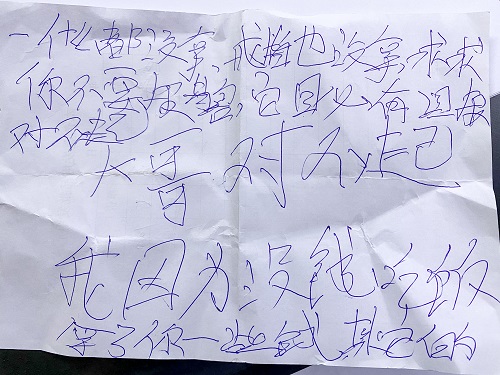 一什么都没拿,戒指也没拿,求求
你不要报警,它日必有回报
对不起
大哥对不起
我因为没钱吃饭
拿了你一些钱其它的